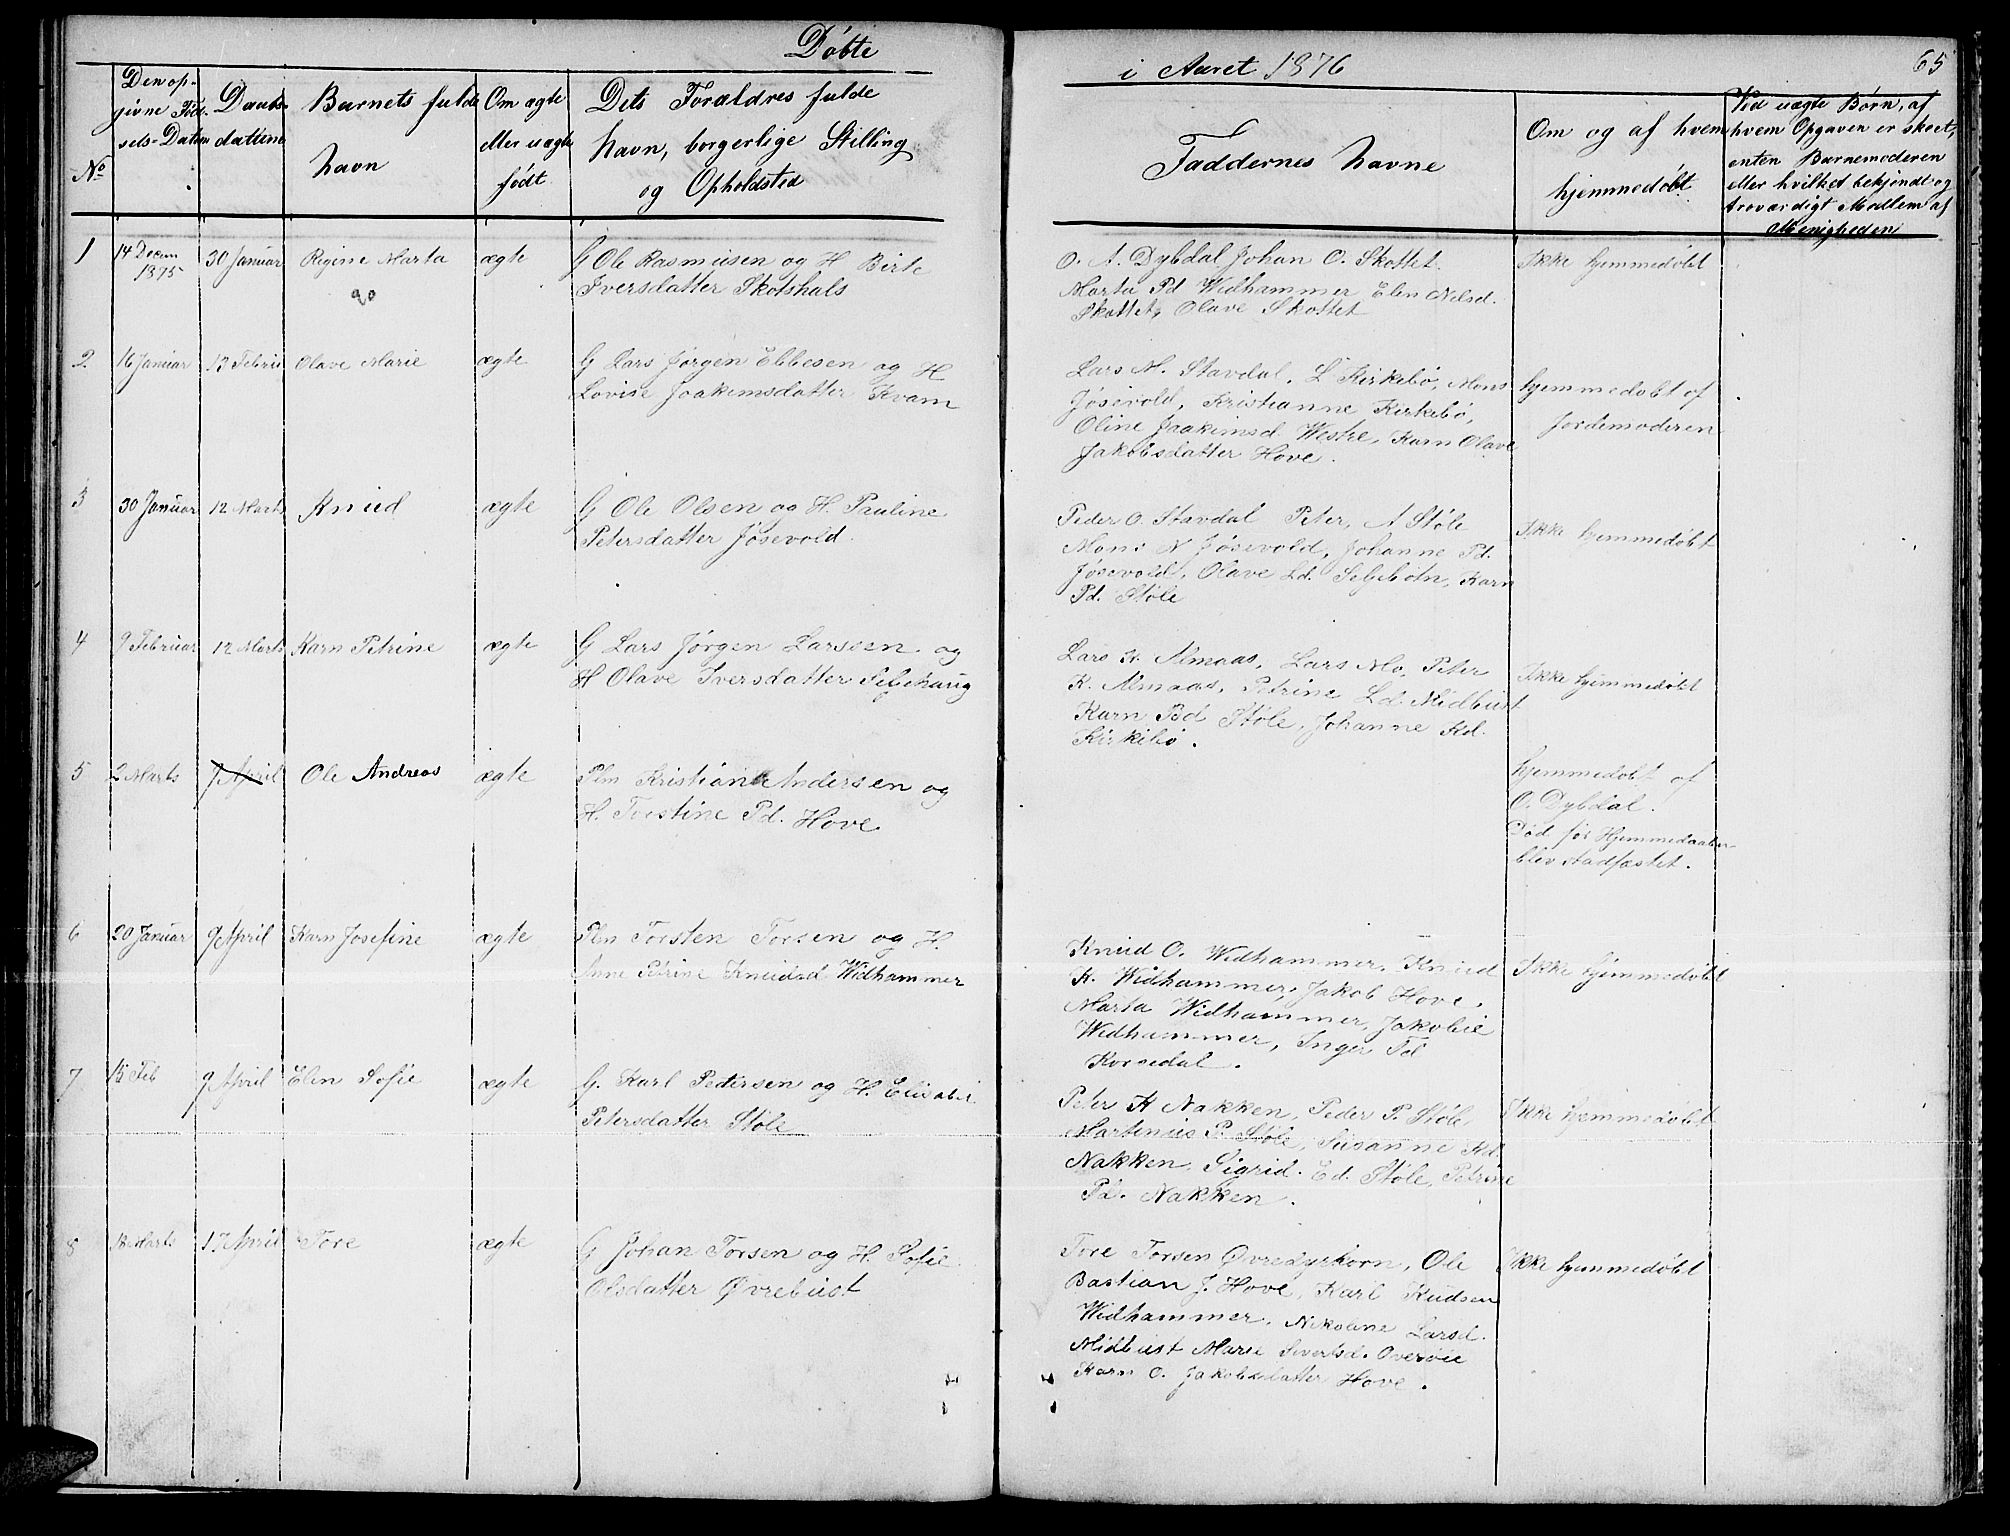 Døbte
i Aaret 1876
65
No
Den op-
givne Fød-
sels-Datum
Daabs-
datum
Barnets fulde
Navn
Om ægte
eller uægte
født
Dets Forældres fulde
Navn, borgerlige Stilling
og Opholdsted
Faddernes Navne
Om og af hvem
hjemmedøbt
Ved uægte Børn, af
hvem Opgaven er skeet,
enten Barnemoderen
eller hvilket bekjendt og
troværdigt Medlem af
Menigheden
1
14 Decem
1875
30 Januar
Regine Marta
ægte
G Ole Rasmusen og H Birte
Iversdatter Skotshals
O. A. Dybdal Johan O. Skottet
Marta Pd Widhammer Elen Nilsd.
Skottet, Olave Skottet
Ikke hjemmedøbt
2
16 Januar
13 Febru
Olave Marie
ægte
G Lars Jørgen Ebbesen og H
Lovise Joakimsdatter Kvam
Lars M. Stavdal, L Kirkebø, Mons
Jøsevold, Kristianne Kirkebø,
Oline Joakimsd Westre, Karn Olave
Jakobsdatter Hove.
hjemmedøbt af
Jordemoderen
3
30 Januar
12 Marts
Knud
ægte
G Ole Olsen og H. Pauline
Petersdatter Jøsevold.
Peder O. Stavdal Peter, A Støle
Mons N Jøsevold, Johanne Pd.
Jøsevold, Olave Ld. Karn
Pd. Støle
Ikke hjemmedøbt
4
9 Februar
12 Marts
Karn Petrine
ægte
G Lars Jørgen Larssen og
H Olave Iversdatter
Lars K. Almaas, Lars Mo, Peter
K. Almaas, Petrine Ld Midbust
Karn Pd Støle, Johanne Kd.
Kirkebø.
Ikke hjemmedøbt
5
2 Marts
9 April
Ole Andreas
ægte
Plm Kristian Andersen og
H. Torstine Pd. Hove
hjemmedøbt af
O. Dybdal.
Død før Hjemmedaaben
blev stadfæstet.
6
20 Januar
9 April
Karn Josefine
ægte
Plm Torsten Torsen og H.
Anne Petrine Knudsd Widhammer
Knud O. Widhammer, Knud
K. Widhammer, Jakob Hove,
Marta Widhammer, Jakobie
Widhammer, Inger Td
Korsedal.
Ikke hjemmedøbt
7
15 Feb
9 April
Elen Sofie
ægte
G. Karl Pedersen og H. Elisabet
Petersdatter Støle
Peter K Nakken, Peder P. Støle
Martinus P. Støle, Susanne Kd.
Nakken, Sigrid. Ed. Støle, Petrine
Pd. Nakken.
Ikke hjemmedøbt
8
18 Marts
17 April
Tore
ægte
G Johan Torsen og H. Sofie
Olsdatter Øvrebust
Tore Torsen Øvredyrkorn, Ole
Bastian J. Hove, Karl Kudsen
Widhammer, Nikoline Larsd.
Midbust Marie Sivertsd. Overøie
Karn O. Jakobsdatter Hove.
Ikke hjemmedøbt